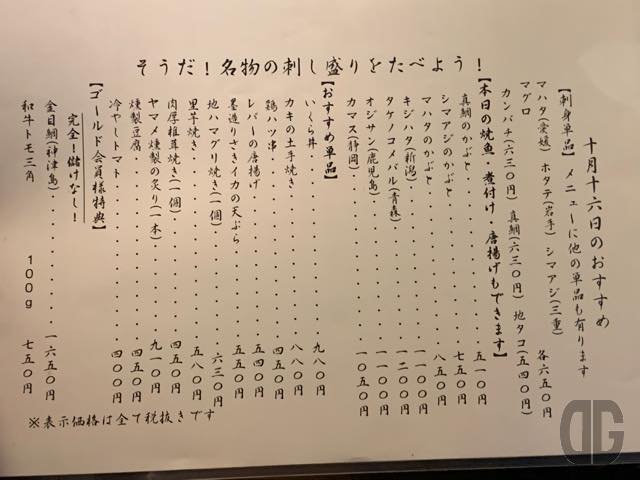 そうだ！名物の刺し盛りをたべよう！
十月十六日のおすすめ
【刺身単品】 メニューに他の単品も有ります
マハタ(愛媛) ホタテ(岩手) シマアジ(三重) 各六五〇円
マグロ
カンパチ(六三〇円) 真鯛(六三〇円) 地タコ(五四〇円)
【本日の焼魚・煮付け・唐揚げもできます】
真鯛のかぶと・・・・・・・・・五一〇円
シマアジのかぶと・・・・・・・七五〇円
マハタのかぶと・・・・・・・・八五〇円
キジハタ(新潟)・・・・・・・一一〇〇円
タケノコメバル(青森)・・・・一二〇〇円
オジサン(鹿児島)・・・・・・一一〇〇円
カマス(静岡)・・・・・・・・一〇五〇円
【おすすめ単品】
いくら丼・・・・・・・・・・・九八〇円
カキの土手焼き・・・・・・・・八八〇円
鶏ハツ串・・・・・・・・・・・四五〇円
レバーの唐揚げ・・・・・・・・五四〇円
墨造りさきイカの天ぷら・・・・五五〇円
地ハマグリ焼き(一個)・・・・六三〇円
里芋焼き・・・・・・・・・・・五八〇円
肉厚椎茸焼き(一個)・・・・・四五〇円
ヤマメ燻製の炙り(一本)・・・九一〇円
燻製豆腐・・・・・・・・・・・四五〇円
冷やしトマト・・・・・・・・・四〇〇円
【ゴールド会員様特典】
完全！儲けなし！
金目鯛(神津島)・・・・・・・一六五〇円
和牛トモ三角 100g 七五〇円
※表示価格は全て税抜きです
DG